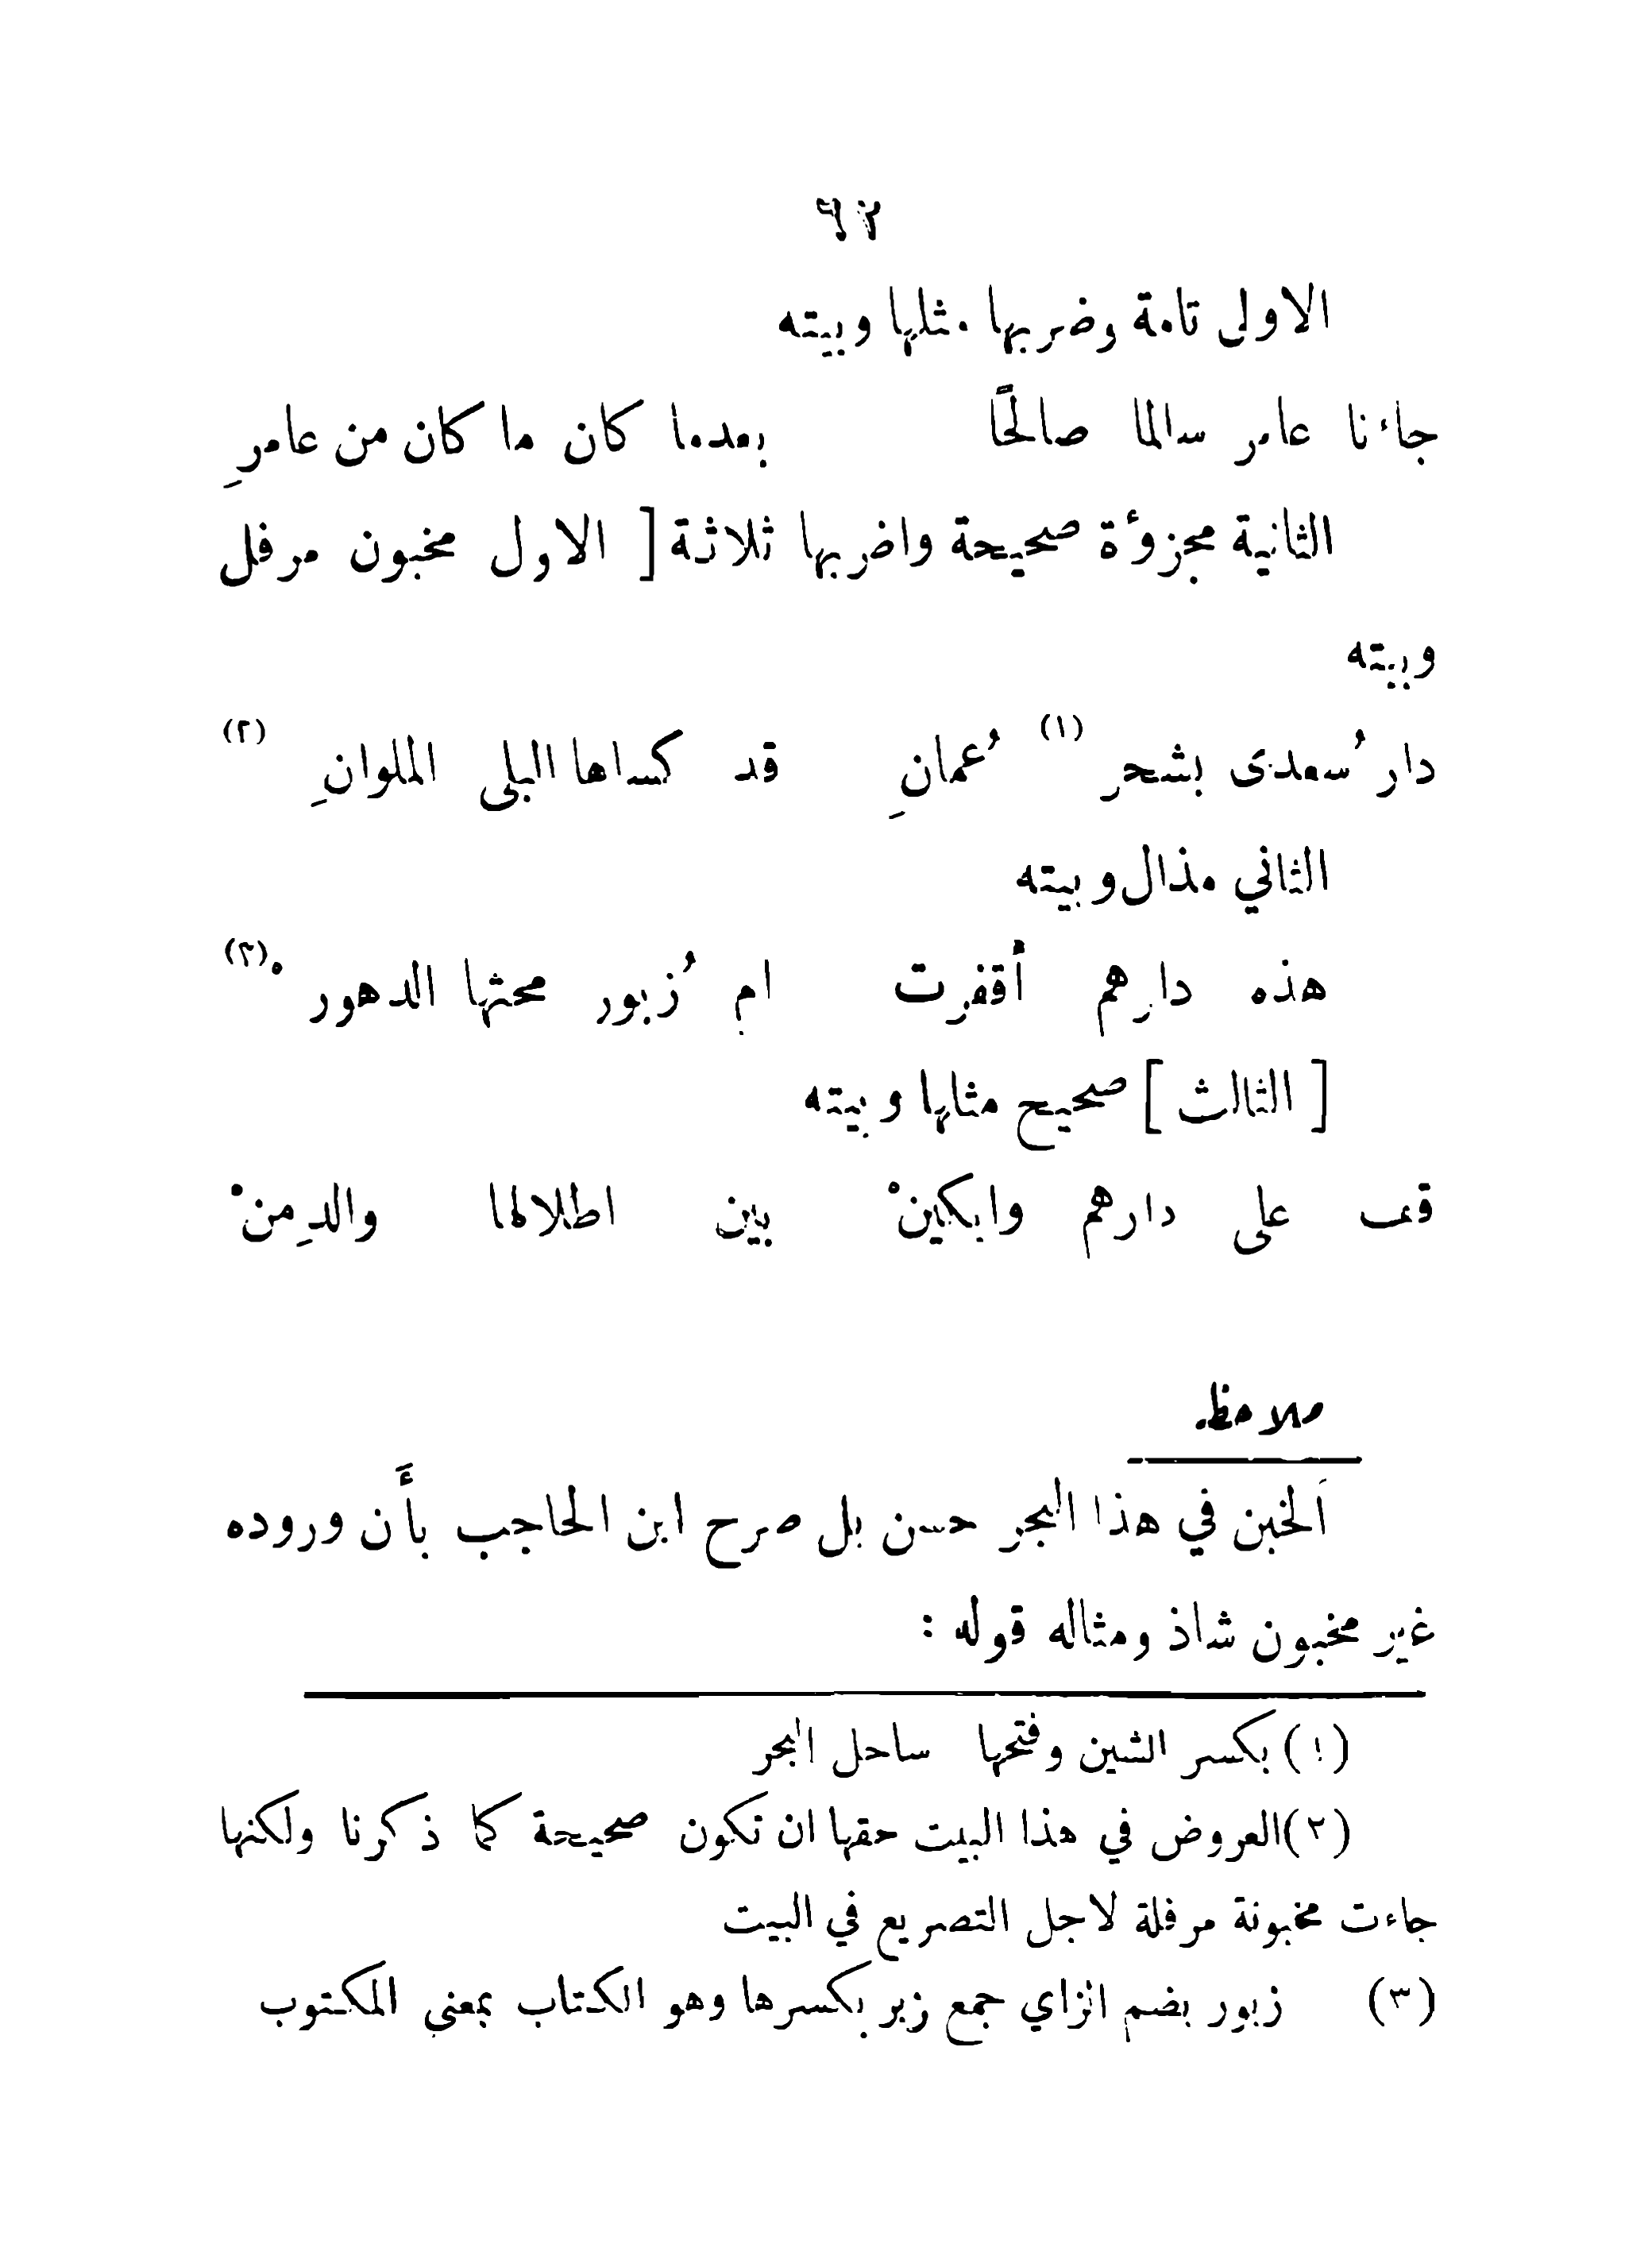 ٦٢
الاولى تامة وضربها مثلها وبيته
جاءنا عامر سالما صالحًا بعدما كان ما كان من عامرِ
الثانية مجزوءة صحيحة واضربها ثلاثة [ الاول مخبون مرفل
وبيته
دار سُعدى بشحر (١) عُمانِ قد كساها البلى الملوانِ (٢)
الثاني مذال وبيته
هذه دارهم أقفرت ام زُبور محتها الدهورْ (٣)
[ الثالث ] صحيح مثلها وبيته
قف على دارهم وابكينْ بين اطلالها والدِمنْ
ملاحظة
اَلخبن في هذا البحر حسن بل صرح ابن الحاجب بأَن وروده
غير مخبون شاذ ومثاله قوله :
(١) بكسر الشين وفتحها ساحل البحر
(٢) العروض في هذا البيت حقها ان تكون صحيحة كما ذكرنا ولكنها
جاءت مخبونة مرفلة لاجل التصريع في البيت
(٣) زبور بضم الزاي جمع زبر بكسرها وهو الكتاب بمعنى المكتوب